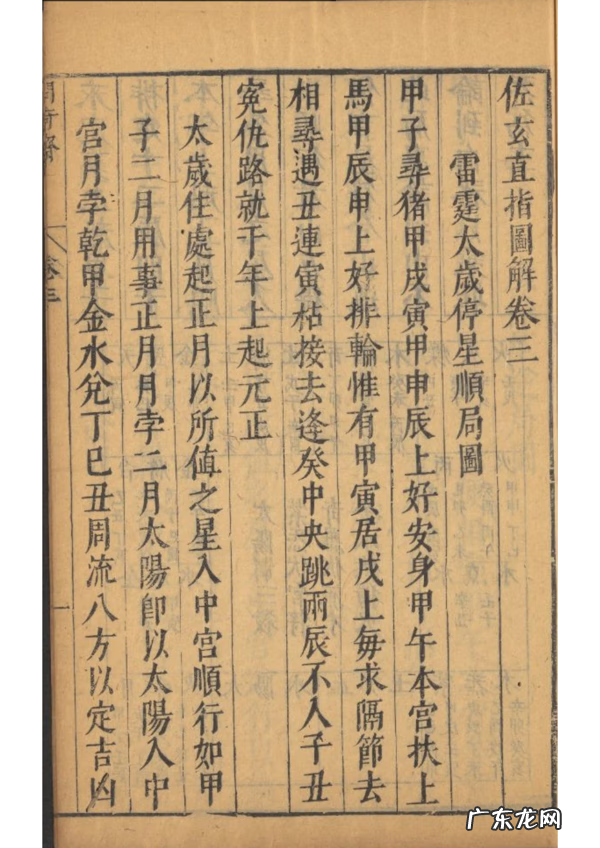 佐玄直指圖解卷三
雷霆太歲停星順局圖
甲子尋猪甲戌寅甲申辰上好安身甲午本宮扶上
馬甲辰申上好排輪惟有甲寅居戌上每求隔節去
相尋遇丑連寅枯接去逢癸中央跳兩辰不入子丑
寃仇路就于年上起元正
太歲住處起正月以所值之星入中宮順行如甲
子二月用事正月月孛二月太陽卽以太陽入中
宮月孛乾甲金水兊丁巳丑周流八方以定吉凶
卷三
一
广东龙网